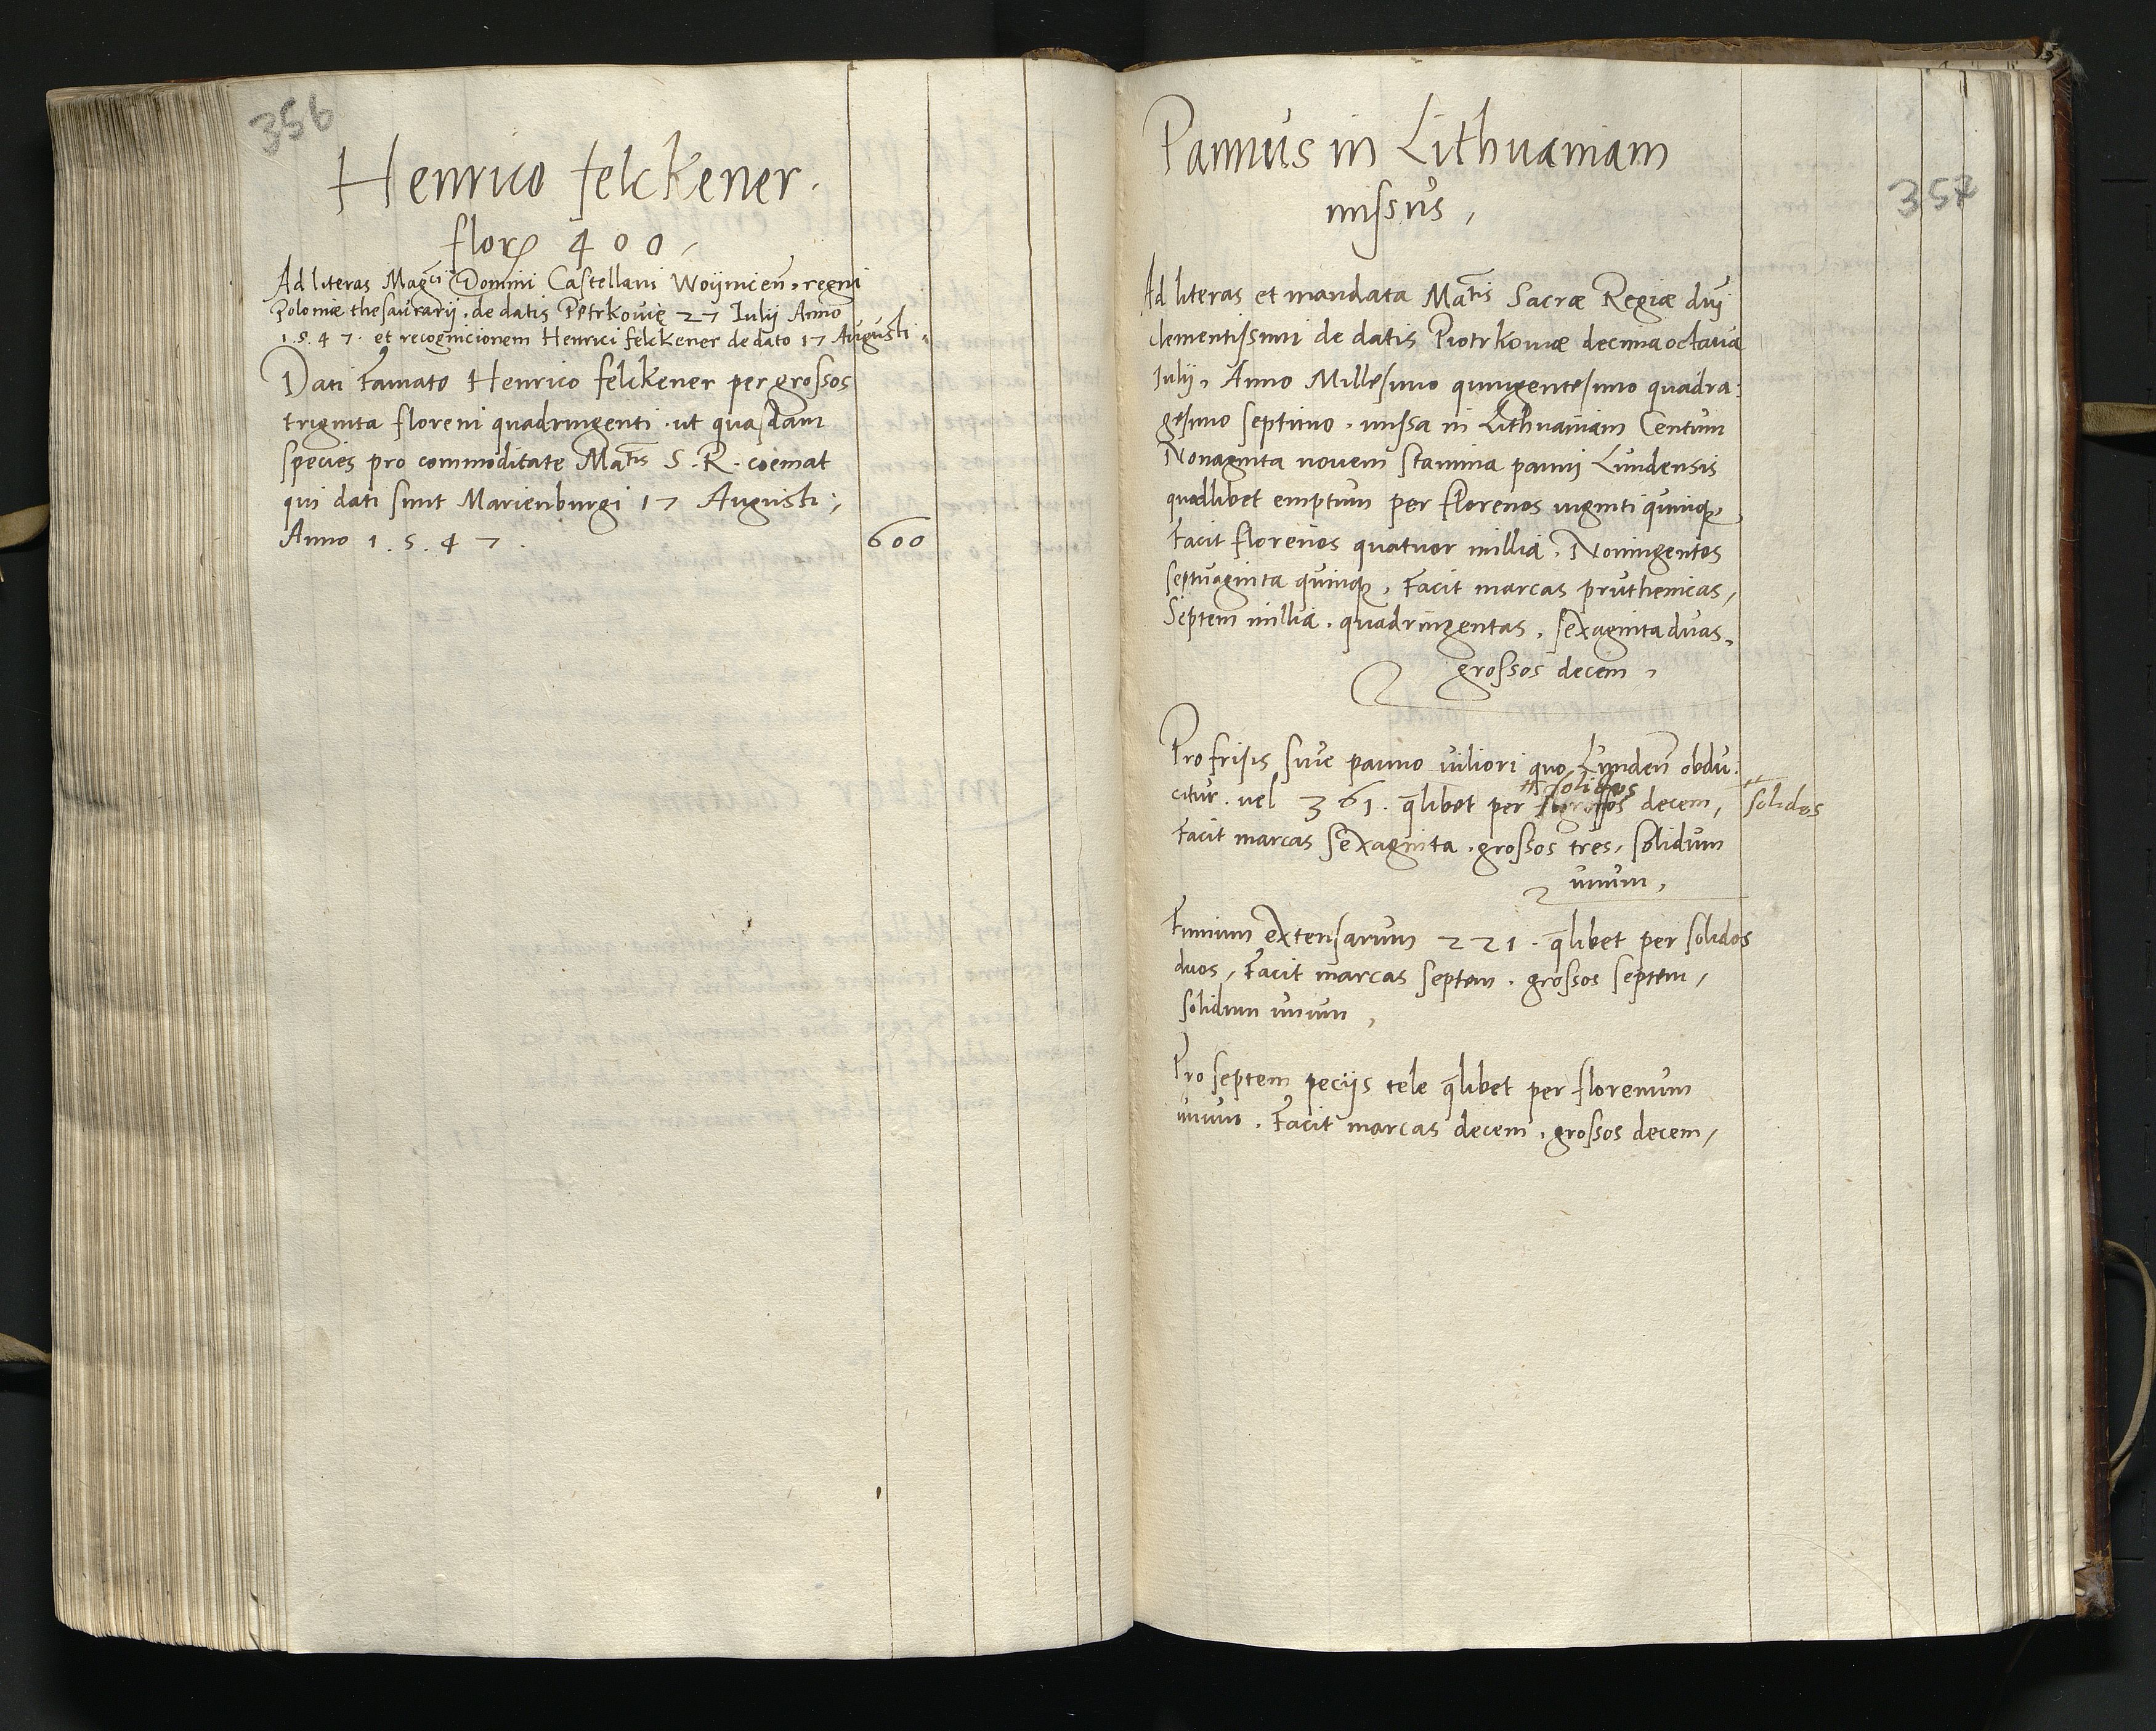 356
Henrico felckener.
flor 400
Ad literas Magci Domini Castellani Woijnicen. regni
Poloniæ thesaurarij. de datis Petrkovię 27 Iulij Anno
1.5.47. et recognicionem Henrici felckener de dato 17 Augusti.
Dati Famato Henrico felckener per grossos
triginta floreni quadringenti. ut quasdam
species pro commoditate Matis S. R. coemat
qui dati sunt Marienburgi 17 Augusti;
Anno 1.5.47. 600
Pannus in Lithuaniam
missus,
357
Ad literas et mandata Matis Sacræ Regiæ dnj
clementissimi de datis Piotrkoviæ decima octaua
Iulij, Anno Millesimo quingentesimo quadra:
gesimo septimo. missa in Lithuaniam Centum
Nonaginta nouem stamina pannj Lundensis
quodlibet emptum per florenos viginti quinq,
Facit florenos quatuor millia, Noningentos
septuaginta quinq, Facit marcas pruthenicas,
Septem millia. quadringentas, sexaginta duas,
grossos decem,
Pro frisis siue panno viliori quo Lunden obdu:
solidos
citur. vel 361. qlibet per grossos decem, solidos
Facit marcas sexaginta. grossos tres, solidum
unum,
Funium extensarum 221. qlibet per solidos
duos, Facit marcas septem. grossos septem,
solidum unum,
Pro septem pecijs tele qlibet per florenum
unum. Facit marcas decem, grossos decem,